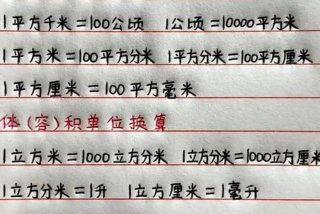 1平方千米=100公顷 1公顷=10000平方米
1平方米=100平方分米 1平方分米=100平方厘米
1平方厘米=100平方毫米
体(容)积单位换算
1立方米=1000立方分米 1立方分米=1000立方厘米
1立方分米=1升 1立方厘米=1毫升